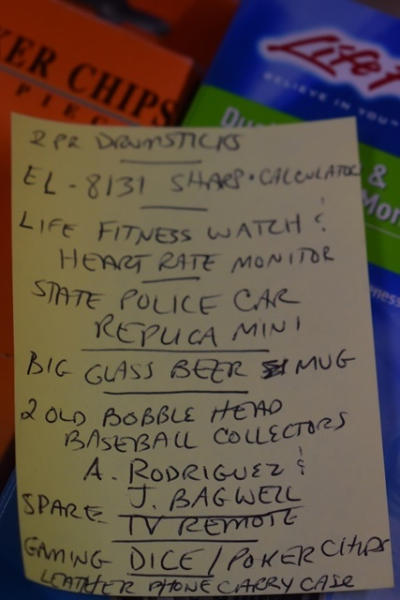 KER CHIPS
PIEC
Life F
BELIEVE IN YOU
& 
Mon
2 PR DRUMSTICKS
EL-8131 SHARP • CALCULATOR
LIFE FITNESS WATCH &
HEART RATE MONITOR
STATE POLICE CAR
REPLICA MINI
BIG GLASS BEER MUG
2 OLD BOBBLE HEAD
BASEBALL COLLECTORS
A. RODRIGUEZ &
J. BAGWELL
SPARE TV REMOTE
GAMING DICE / POKER CHIPS
LEATHER PHONE CARRY CASE